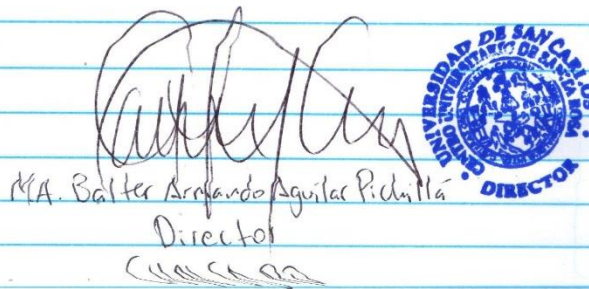 M.A. Balter Armando Aguilar Pichillá
Director
UNIVERSIDAD DE SAN CARLOS
CENTRO UNIVERSITARIO DE SANTA ROSA
DIRECTOR